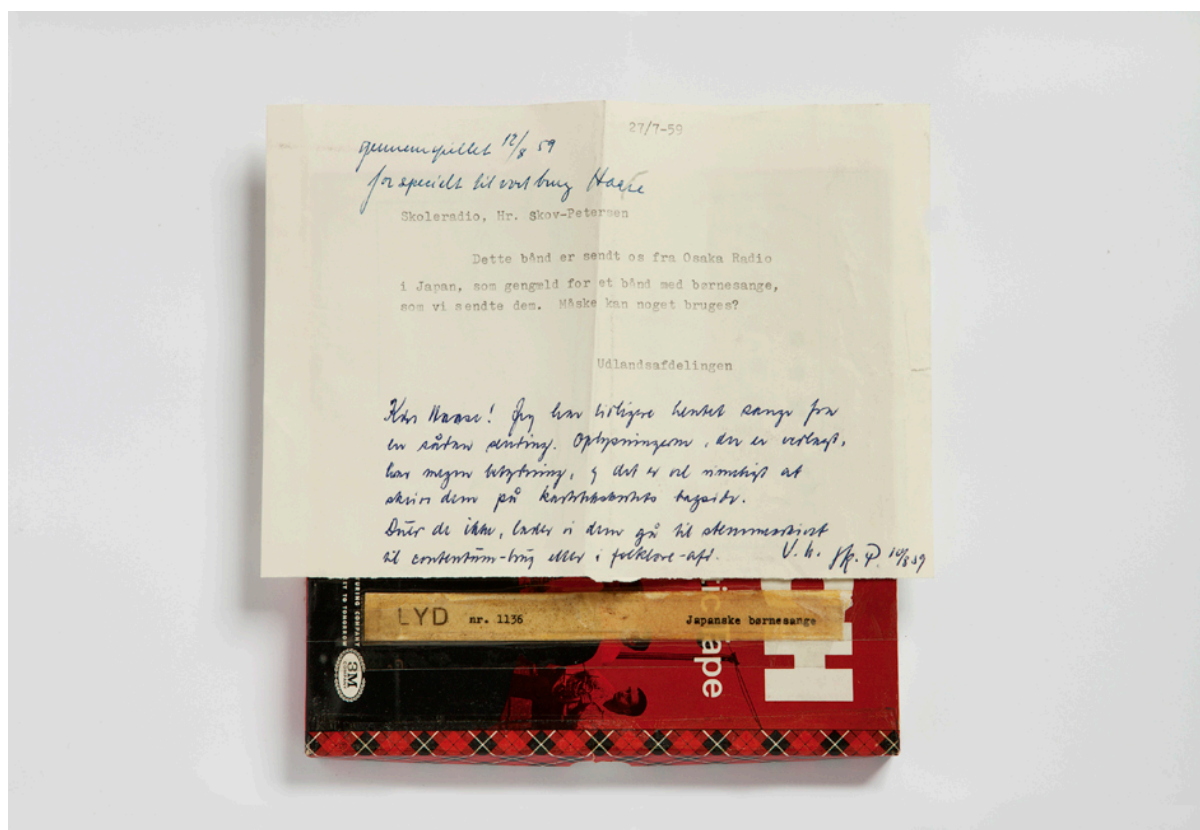 27/7-59
gennemspillet 12/8 59
for specielt til vort brug Haase
Skoleradio, Hr. Skov-Petersen
Dette bånd er sendt os fra Osaka Radio
i Japan, som gengæld for et bånd med børnesange,
som vi sendte dem. Måske kan noget bruges?
Udlandsafdelingen
Kære Haase! Jeg har tidligere hentet sange fra
en sådan sending. Oplysningerne, der er vedlagt,
har megen betydning, og det er vel rimeligt at
skrive dem på bagside.
Duer de ikke, lader vi dem gå til stemmearkivet
til contentum-brug eller i folklore-afd. V.h. Sk. P. 10/8 59
LYD nr. 1136 Japanske børnesange
URING COMPANY
EY TO TOMORROW
3M
tic
ape
H